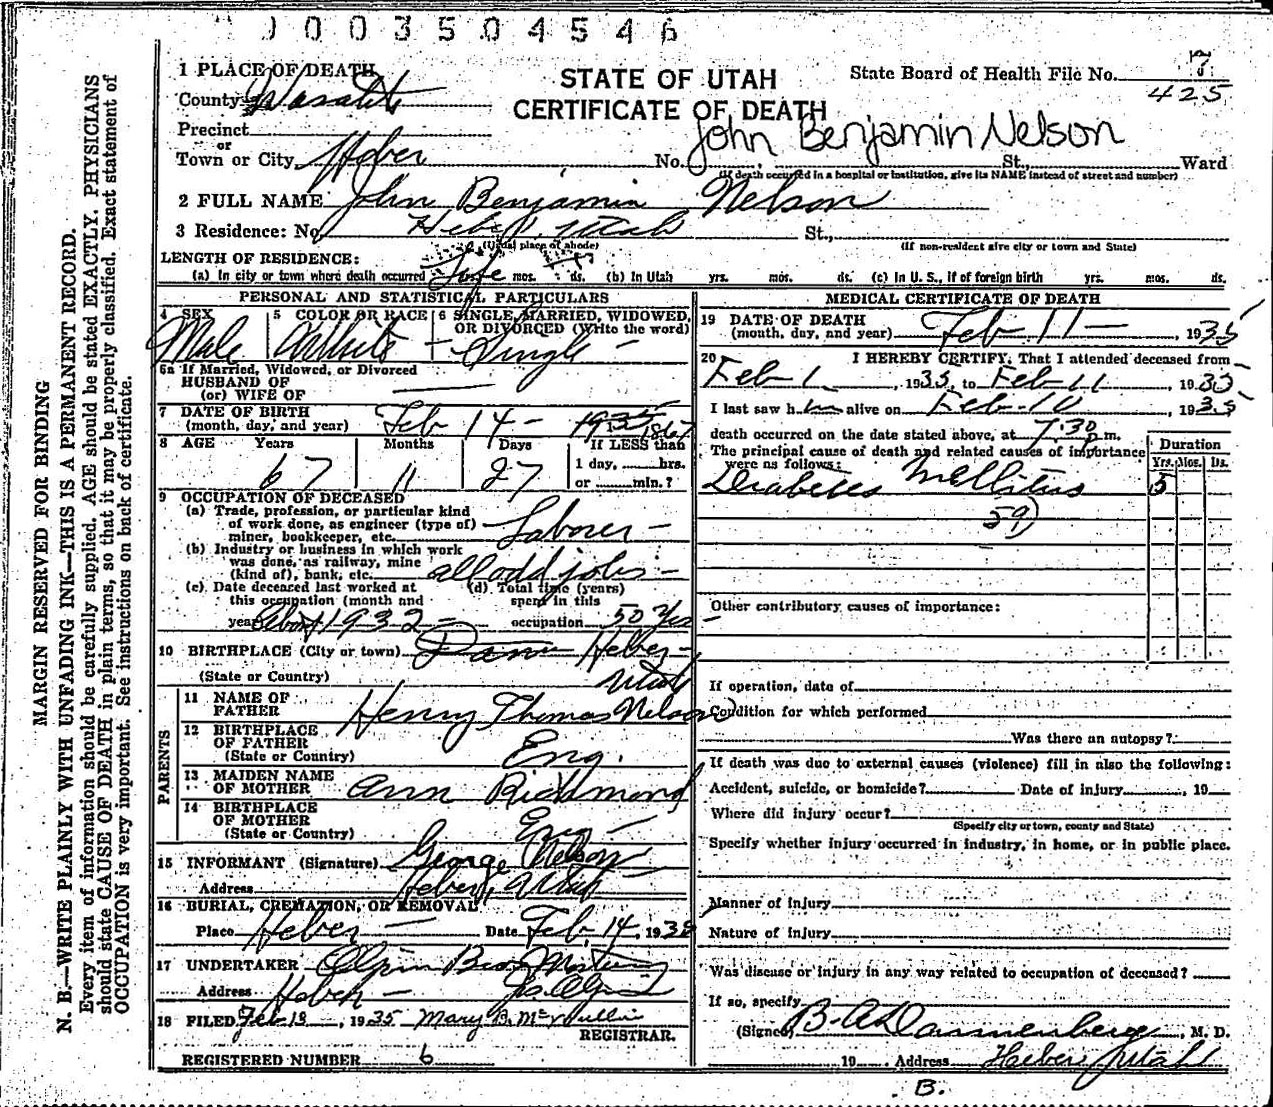 1003504546
1 PLACE OF DEATH
STATE OF UTAH
CERTIFICATE OF DEATH
State Board of Health File No. 7
425
County Wasatch
Precinct
or
Town or City Heber No. John Benjamin Nelson St., Ward
(If death occurred in a hospital or institution, give its NAME instead of street and number)
2 FULL NAME John Benjamin Nelson
3 Residence: No. Heber, Utah St.,
(Usual place of abode) (If non-resident give city or town and State)
LENGTH OF RESIDENCE:
(a) In city or town where death occurred Life mos. ds. (b) In Utah yrs. mos. ds. (c) In U. S., if of foreign birth yrs. mos. ds.
PERSONAL AND STATISTICAL PARTICULARS
4 SEX 5 COLOR OR RACE 6 SINGLE, MARRIED, WIDOWED,
OR DIVORCED (Write the word)
Male White - Single -
6a If Married, Widowed, or Divorced
HUSBAND OF
(or) WIFE OF
7 DATE OF BIRTH
(month, day, and year) Feb 14 - 1935 1867
8 AGE Years Months Days If LESS than
67 11 27 1 day, hrs.
or min.?
9 OCCUPATION OF DECEASED
(a) Trade, profession, or particular kind
of work done, as engineer (type of)
miner, bookkeeper, etc. Laborer -
(b) Industry or business in which work
was done, as railway, mine
(kind of), bank, etc. all odd jobs -
(c) Date deceased last worked at (d) Total time (years)
this occupation (month and spent in this
year) About 1932 - occupation 50 yrs -
10 BIRTHPLACE (City or town) Heber -
(State or Country) Utah
PARENTS
11 NAME OF
FATHER Henry Thomas Nelson
12 BIRTHPLACE
OF FATHER
(State or Country) Eng.
13 MAIDEN NAME
OF MOTHER Ann Richmond
14 BIRTHPLACE
OF MOTHER
(State or Country) Eng -
15 INFORMANT (Signature) George Nelson
Address Heber, Utah
16 BURIAL, CREMATION, OR REMOVAL
Place Heber - Date Feb, 14, 1935
17 UNDERTAKER Olpin Bros Mortuary
Address Heber -
18 FILED Feb 13, 1935 Mary B. McMullin
REGISTRAR.
REGISTERED NUMBER 6
MEDICAL CERTIFICATE OF DEATH
19 DATE OF DEATH
(month, day, and year) Feb - 11 - , 1935
20 I HEREBY CERTIFY, That I attended deceased from
Feb 1, 1935, to Feb - 11, 1935
I last saw him alive on Feb - 10, 1935
death occurred on the date stated above, at 7:30 p.m.
The principal cause of death and related causes of importance
were as follows:
Duration
Yrs. Mos. Ds.
Diabetes Mellitus 5
59)
Other contributory causes of importance:
If operation, date of
Condition for which performed
Was there an autopsy?
If death was due to external causes (violence) fill in also the following:
Accident, suicide, or homicide? Date of injury , 19
Where did injury occur?
(Specify city or town, county and State)
Specify whether injury occurred in industry, in home, or in public place.
Manner of injury
Nature of injury
Was disease or injury in any way related to occupation of deceased?
If so, specify
(Signed) B. A. Dannenberg, M. D.
19 Address Heber, Utah
B.
MARGIN RESERVED FOR BINDING
N. B.—WRITE PLAINLY WITH UNFADING INK—THIS IS A PERMANENT RECORD.
Every item of information should be carefully supplied. AGE should be stated EXACTLY. PHYSICIANS
should state CAUSE OF DEATH in plain terms, so that it may be properly classified. Exact statement of
OCCUPATION is very important. See instructions on back of certificate.